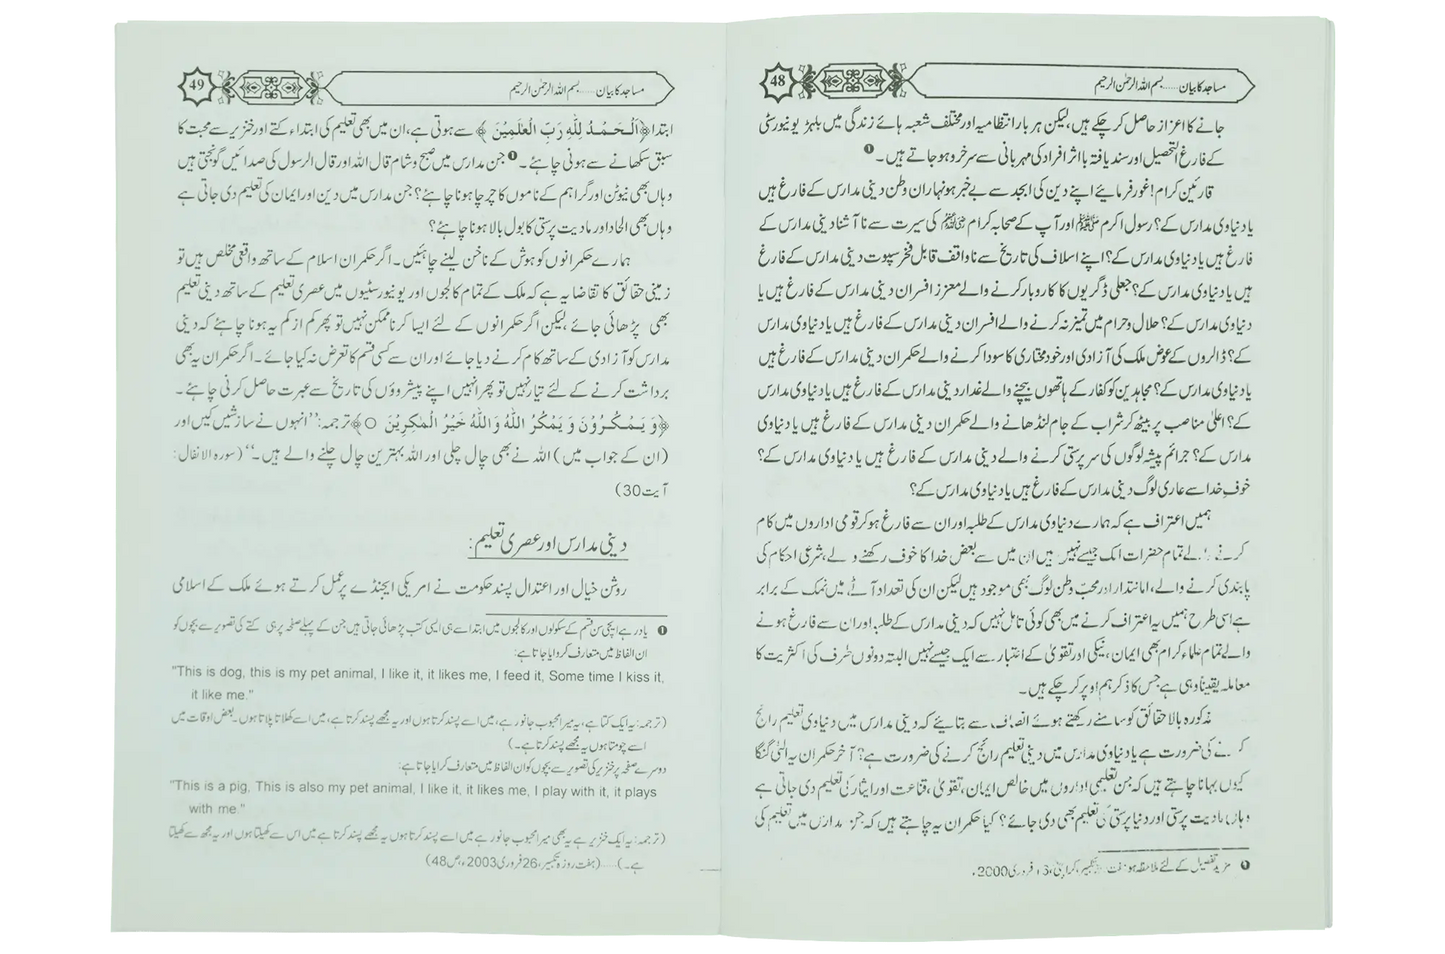 48
مساجد کا بیان......بسم اللہ الرحمٰن الرحیم
جانے کا اعزاز حاصل کر چکے ہیں، لیکن ہر بار انتظامیہ اور مختلف شعبہ ہائے زندگی میں بلہڑ یونیورسٹی
کے فارغ التحصیل اور سند یافتہ با اثر افراد کی مہربانی سے سرخرو ہو جاتے ہیں۔❶
قارئین کرام! غور فرمائیے اپنے دین کی ابجد سے بے خبر ہونہاران وطن دینی مدارس کے فارغ ہیں
یا دنیاوی مدارس کے؟ رسول اکرم ﷺ اور آپ کے صحابہ کرام ﷺ کی سیرت سے نا آشنا دینی مدارس کے
فارغ ہیں یا دنیاوی مدارس کے؟ اپنے اسلاف کی تاریخ سے ناواقف قابل فخر سپوت دینی مدارس کے فارغ
ہیں یا دنیاوی مدارس کے؟ جعلی ڈگریوں کا کاروبار کرنے والے معزز افسران دینی مدارس کے فارغ ہیں یا
دنیاوی مدارس کے؟ حلال و حرام میں تمیز نہ کرنے والے افسران دینی مدارس کے فارغ ہیں یا دنیاوی مدارس
کے؟ ڈالروں کے عوض ملک کی آزادی اور خود مختاری کا سودا کرنے والے حکمران دینی مدارس کے فارغ ہیں
یا دنیاوی مدارس کے؟ مجاہدین کو کفار کے ہاتھوں بیچنے والے غدار دینی مدارس کے فارغ ہیں یا دنیاوی مدارس
کے؟ اعلیٰ مناصب پر بیٹھ کر شراب کے جام لنڈھانے والے حکمران دینی مدارس کے فارغ ہیں یا دنیاوی
مدارس کے؟ جرائم پیشہ لوگوں کی سرپرستی کرنے والے دینی مدارس کے فارغ ہیں یا دنیاوی مدارس کے؟
خوفِ خدا سے عاری لوگ دینی مدارس کے فارغ ہیں یا دنیاوی مدارس کے؟
ہمیں اعتراف ہے کہ ہمارے دنیاوی مدارس کے طلبہ اور ان سے فارغ ہو کر قومی اداروں میں کام
کرنے والے تمام حضرات ایک جیسے نہیں ہیں ان میں سے بعض خدا کا خوف رکھنے والے، شرعی احکام کی
پابندی کرنے والے، امانتدار اور محبّ وطن لوگ بھی موجود ہیں لیکن ان کی تعداد آٹے میں نمک کے برابر
ہے اسی طرح ہمیں یہ اعتراف کرنے میں بھی کوئی تامل نہیں کہ دینی مدارس کے طلبہ اور ان سے فارغ ہونے
والے تمام علماء کرام بھی ایمان، نیکی اور تقویٰ کے اعتبار سے ایک جیسے نہیں البتہ دونوں طرف کی اکثریت کا
معاملہ یقیناً وہی ہے جس کا ذکر ہم اوپر کر چکے ہیں۔
مذکورہ بالا حقائق کو سامنے رکھتے ہوئے انصاف سے بتایئے کہ دینی مدارس میں دنیاوی تعلیم رائج
کرنے کی ضرورت ہے یا دنیاوی مدارس میں دینی تعلیم رائج کرنے کی ضرورت ہے؟ آخر حکمران یہ الٹی گنگا
کیوں بہانا چاہتے ہیں کہ جن تعلیمی اداروں میں خالص ایمان، تقویٰ، قناعت اور ایثار کی تعلیم دی جاتی ہے
وہاں مادیت پرستی اور دنیا پرستی کی تعلیم بھی دی جائے؟ کیا حکمران یہ چاہتے ہیں کہ جن مدارس میں تعلیم کی
❶ مزید تفصیل کے لئے ملاحظہ ہو ہفت تکبیر، کراچی، فروری 2000ء
49
مساجد کا بیان......بسم اللہ الرحمٰن الرحیم
ابتدا ﴿اَلْحَمْدُ لِلّٰهِ رَبِّ الْعٰلَمِيْنَ﴾ سے ہوتی ہے، ان میں بھی تعلیم کی ابتداء کتے اور خنزیر سے محبت کا
سبق سکھانے سے ہونی چاہئے۔❶ جن مدارس میں صبح و شام قال اللہ اور قال الرسول کی صدائیں گونجتی ہیں
وہاں بھی نیوٹن اور گراہم کے ناموں کا چرچا ہونا چاہئے؟ جن مدارس میں دین اور ایمان کی تعلیم دی جاتی ہے
وہاں بھی الحاد اور مادیت پرستی کا بول بالا ہونا چاہئے؟
ہمارے حکمرانوں کو ہوش کے ناخن لینے چاہئیں۔ اگر حکمران اسلام کے ساتھ واقعی مخلص ہیں تو
زمینی حقائق کا تقاضا یہ ہے کہ ملک کے تمام کالجوں اور یونیورسٹیوں میں عصری تعلیم کے ساتھ دینی تعلیم
بھی پڑھائی جائے، لیکن اگر حکمرانوں کے لئے ایسا کرنا ممکن نہیں تو پھر کم از کم یہ ہونا چاہئے کہ دینی
مدارس کو آزادی کے ساتھ کام کرنے دیا جائے اور ان سے کسی قسم کا تعرض نہ کیا جائے۔ اگر حکمران یہ بھی
برداشت کرنے کے لئے تیار نہیں تو پھر انہیں اپنے پیشروؤں کی تاریخ سے عبرت حاصل کرنی چاہئے۔
﴿وَ يَمْكُرُوْنَ وَ يَمْكُرُ اللّٰهُ وَاللّٰهُ خَيْرُ الْمٰكِرِيْنَ ○﴾ ترجمہ: ’’انہوں نے سازشیں کیں اور
(ان کے جواب میں) اللہ نے بھی چال چلی اور اللہ بہترین چال چلنے والے ہیں۔‘‘ (سورہ الانفال:
آیت 30)
دینی مدارس اور عصری تعلیم:
روشن خیال اور اعتدال پسند حکومت نے امریکی ایجنڈے پر عمل کرتے ہوئے ملک کے اسلامی
❶ یاد رہے ایچی سن قسم کے سکولوں اور کالجوں میں ابتدا سے ہی ایسی کتب پڑھائی جاتی ہیں جن کے پہلے صفحہ پر ہی کتے کی تصویر سے بچوں کو
ان الفاظ میں متعارف کروایا جاتا ہے:
"This is dog, this is my pet animal, I like it, it likes me, I feed it, Some time I kiss it,
it like me."
(ترجمہ: یہ ایک کتا ہے، یہ میرا محبوب جانور ہے، میں اسے پسند کرتا ہوں اور یہ مجھے پسند کرتا ہے، میں اسے کھلاتا پلاتا ہوں۔ بعض اوقات میں
اسے چومتا ہوں یہ مجھے پسند کرتا ہے۔)
دوسرے صفحہ پر خنزیر کی تصویر سے بچوں کو ان الفاظ میں متعارف کرایا جاتا ہے:
"This is a pig, This is also my pet animal, I like it, it likes me, I play with it, it plays
with me."
(ترجمہ: یہ ایک خنزیر ہے یہ بھی میرا محبوب جانور ہے میں اسے پسند کرتا ہوں یہ مجھے پسند کرتا ہے میں اس سے کھیلتا ہوں اور یہ مجھ سے کھیلتا
ہے۔)......(ہفت روزہ تکبیر، 26 فروری 2003ء، ص 48)